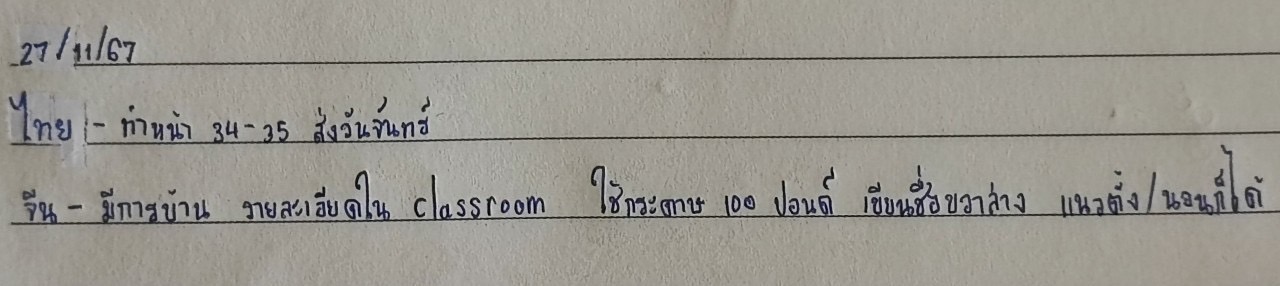 27/11/67
ไทย - ทำหน้า 34-35 ส่งวันจันทร์
จีน - มีการบ้าน รายละเอียดใน classroom ใช้กระดาษ 100 ปอนด์ เขียนชื่อขวาล่าง แนวตั้ง/นอนก็ได้